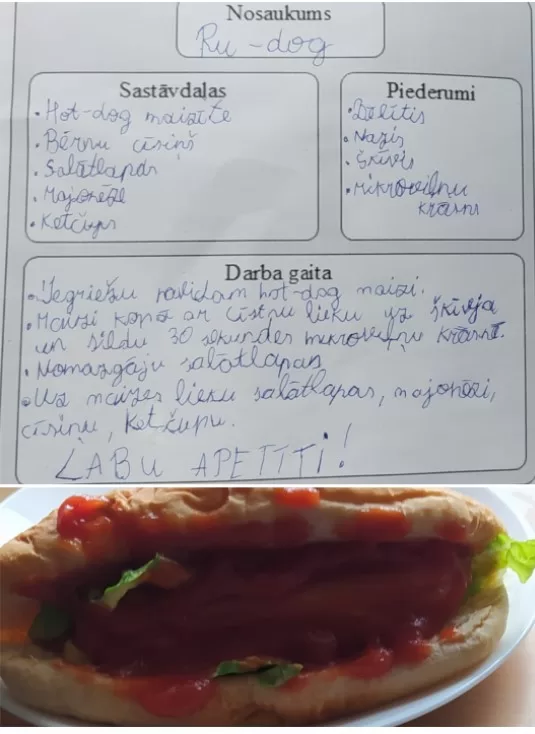 Nosaukums
Ru-dog
Sastāvdaļas
• Hot-dog maizīte
• Bērnu cīsiņš
• Salātlapas
• Majonēze
• Ketčups
Piederumi
• Dēlītis
• Nazis
• Šķīvis
• Mikroviļņu
krāsns
Darba gaita
• Iegriežu pavidam hot-dog maizi.
• Maizi kopā ar cīsiņu lieku uz šķīvja
un sildu 30 sekundes mikroviļņu krāsnī.
• Nomazgāju salātlapas
• Uz maizes lieku salātlapas, majonēzi,
cīsiņu, ketčupu.
LABU APETĪTI!